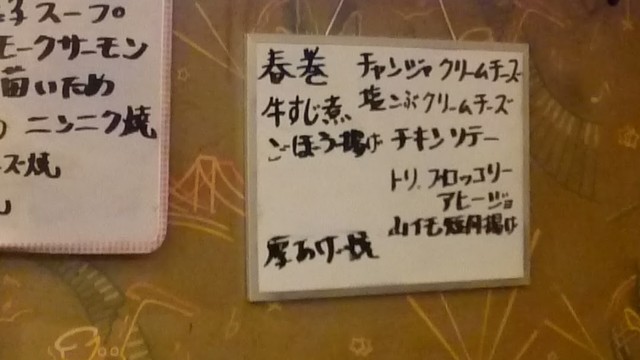 スープ
モークサーモン
いため
ニンニク焼
ズ焼
春巻 チャンジャクリームチーズ
牛すじ煮 塩こぶクリームチーズ
ごぼう揚げ チキンソテー
トリ、ブロッコリー
アヒージョ
山イモ短冊揚げ
厚あげ焼